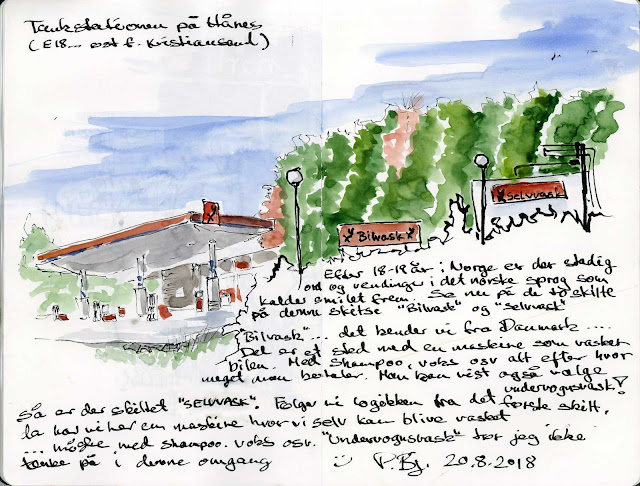 Tankstationen på Hånes
(E18... øst f. Kristiansand)
Bilvask
Selvvask
Efter 18-19 år i Norge er der stadig
ord og vendinger i det norske sprog som
kalder smilet frem... Se nu på de to skilte
på denne skitse "Bilvask" og "Selvvask"
"Bilvask"... det kender vi fra Danmark....
Det er et sted med en maskine som vasker
bilen. Med shampoo, voks osv alt efter hvor
meget man betaler. Man kan vist også vælge
undervognsvask!
Så er der skiltet "SELVVASK". Følger vi logikken fra det første skilt,
så har vi her en maskine hvor vi selv kan blive vasket
... måske med shampoo, voks osv. "Undervognsvask" tør jeg ikke
tænke på i denne omgang
P.Bj. 20.8.2018